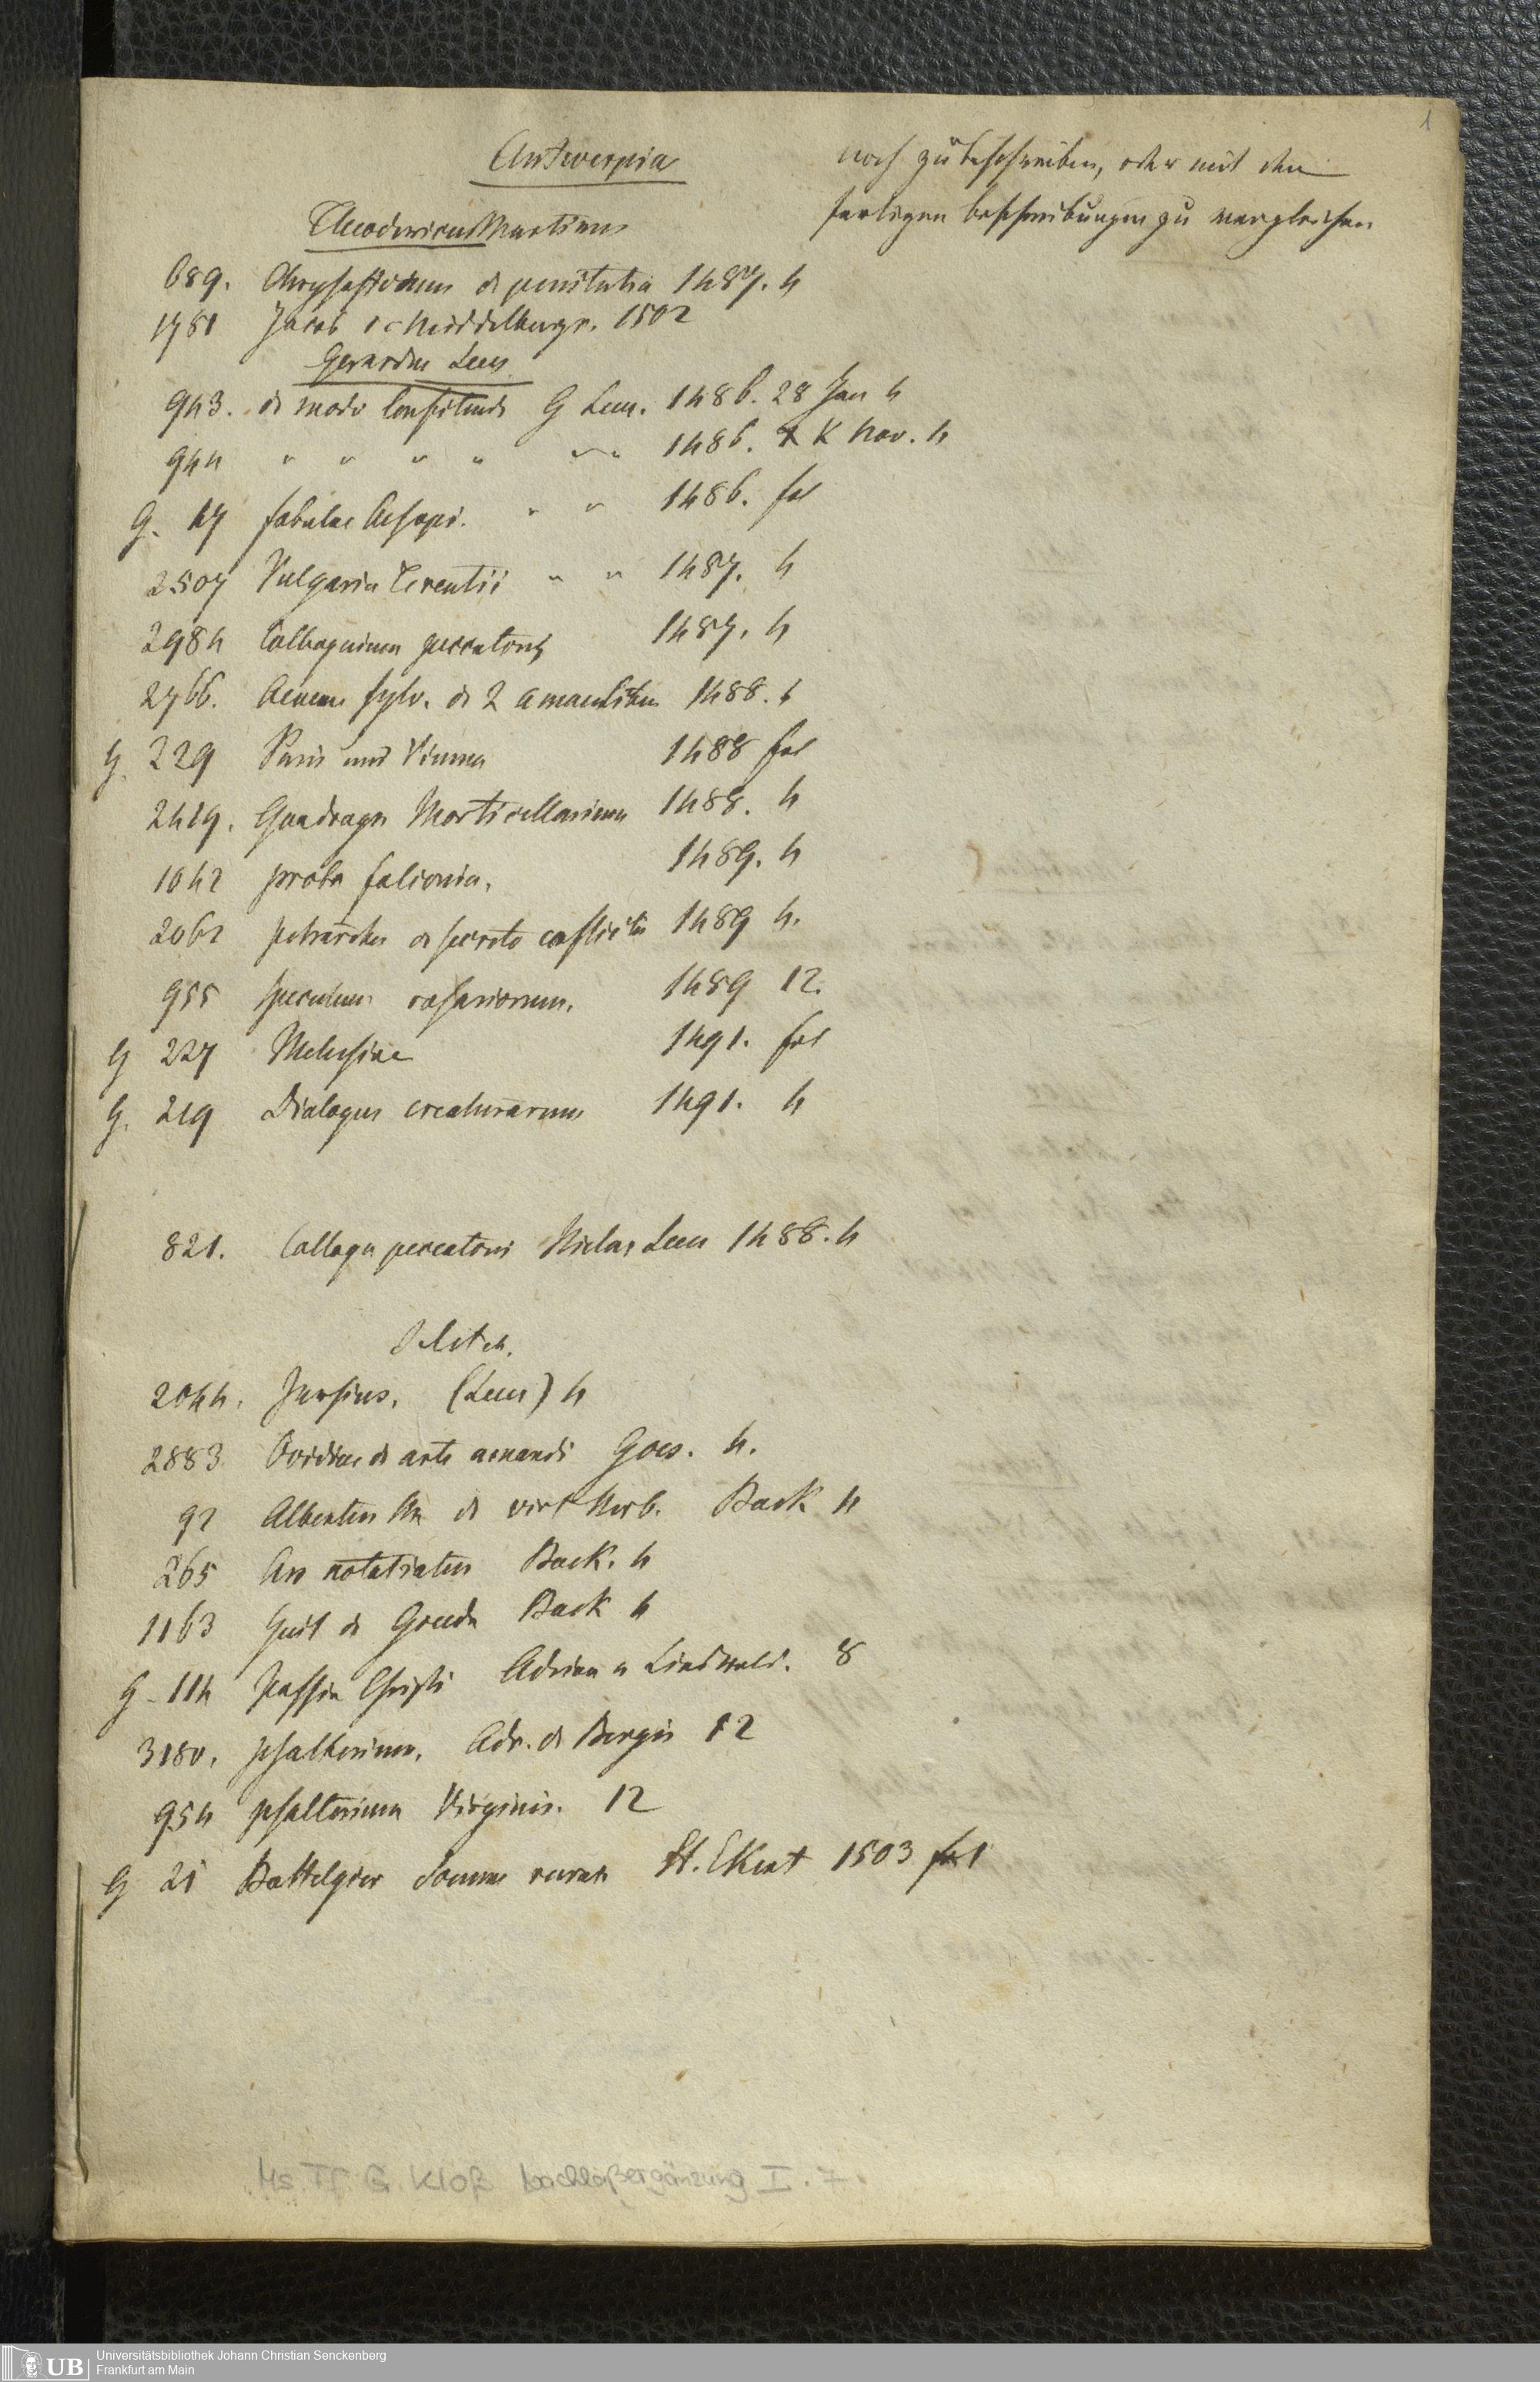 1
Antwerpia
noch zu beschreiben, oder mit den
fertigen beschreibungen zu vergleichen
Theodericus Martinus
689. Chrysostomus de penitentia 1487. 4
1781 Jacob Middelburg. 1502
Gerardus Leeu
943. de modo confitendi G Leeu. 1486. 28 Jan 4
944 " " " " " " 1486. X K Nov. 4
G. 17 fabulae Aesopi. " " 1486. fol
2507 Vulgaria Terentii " " 1487. 4
2984 Colloquium peccatoris 1487. 4
2766. Aeneas Sylv. de 2 amantibus 1488. 4
G. 229 Paris und Vienna 1488 fol
2419. Quadrages Morticellarium 1488. 4
1042 proba falconia. 1489. 4
2062 petrarcha de secreto conflictu 1489 4.
955 speculum rosariorum. 1489 12.
G 227 Melusine 1491. fol
G. 219 Dialogus creaturarum 1491. 4
821. Colloqu peccatoris Niclas Leeu 1488. 4
2044. Persius. (Leeu) 4
2883 Ovidius de arte amandi Goes. 4.
92 Albertus M de virt herb. Back 4
265 Ars notariatus Back. 4
1163 Guil de Gouda Back 4
G - 114 Passio Christi Adrian v Liesveld. 8
3180. psalterium. Adr. de Bergis 12
954 psalterium Virginis. 12
G 21 Bottelgier Somme rurael H. Ekert 1503 fol
Ms. Ff. G. Kloß Nachlaßergänzung I. 7.
UB
Universitätsbibliothek Johann Christian Senckenberg
Frankfurt am Main